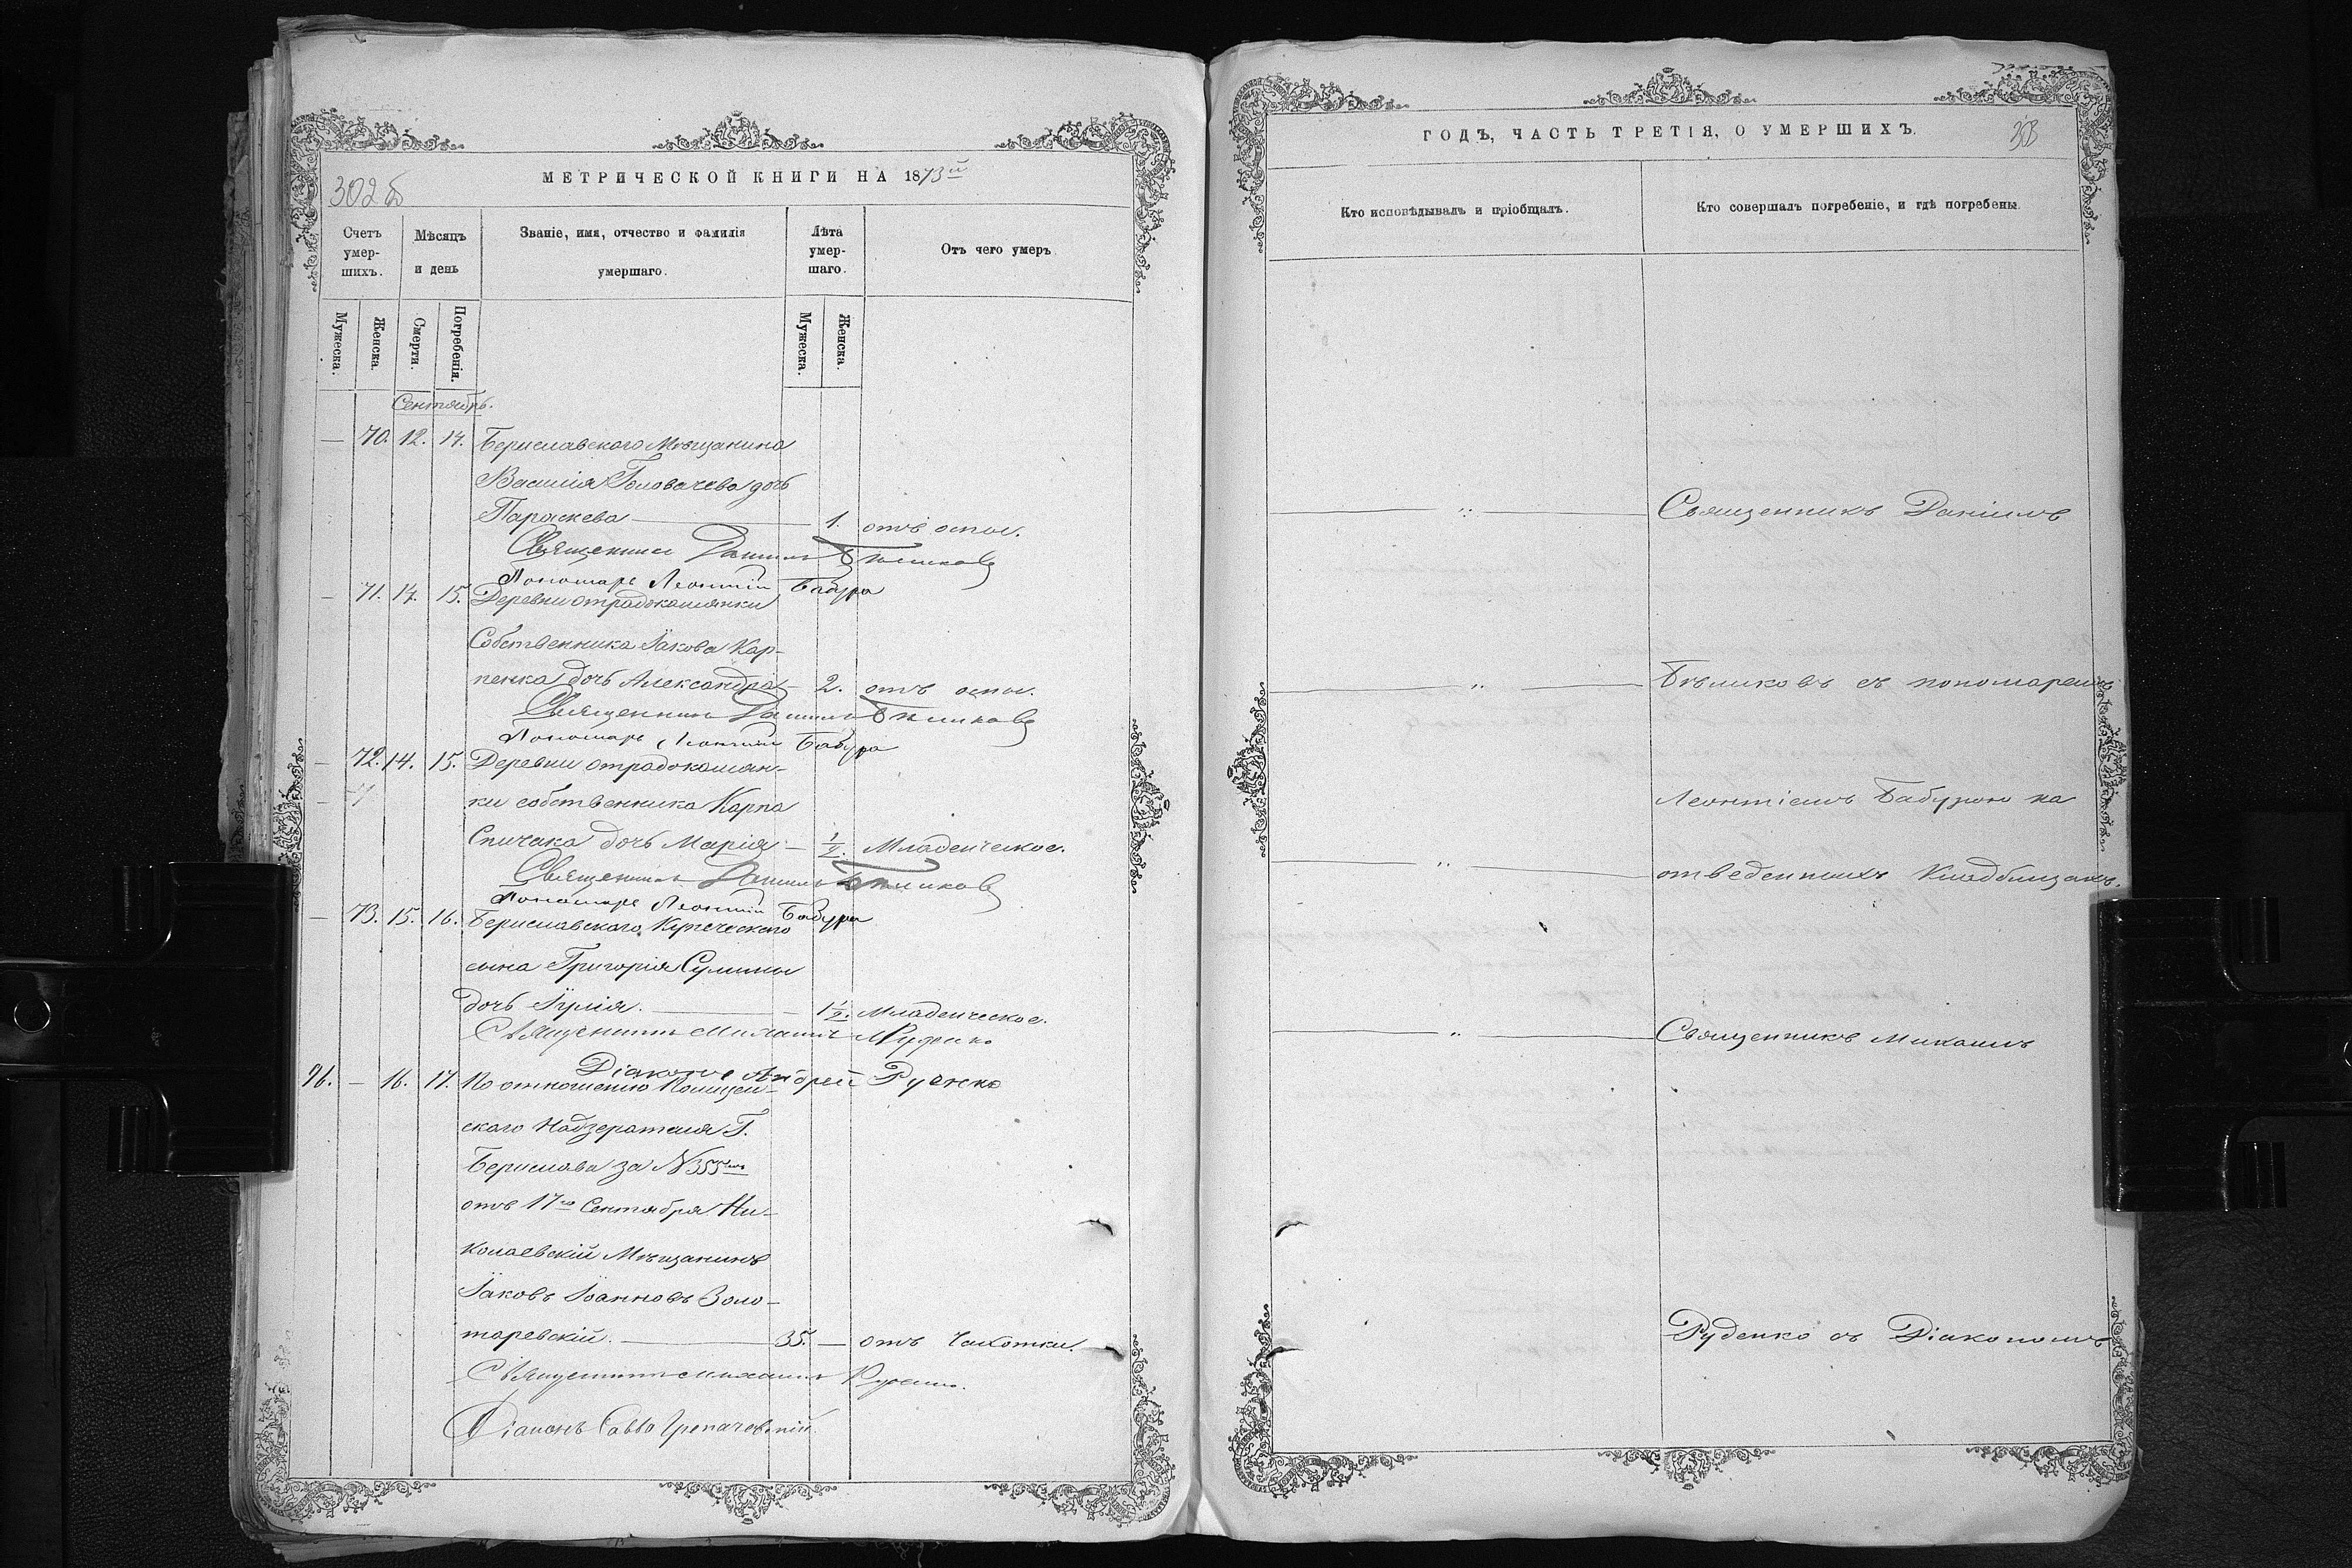 302 б
МЕТРИЧЕСКОЙ КНИГИ НА 1873й
Счетъ умер-шихъ.
Мѣсяцъ и день
Званіе, имя, отчество и фамилія умершаго.
Лѣта умер-шаго.
Отъ чего умеръ
Мужеска.
Женска.
Смерти.
Погребенія.
Мужеска.
Женска.
Сентябрь.
— 70. 12. 14. Бериславского Мѣщанина
Василія Головачева дочь
Параскева — 1. отъ оспы.
Священникъ Даніилъ Бѣликовъ
Пономарь Леонтій Бабура
— 71. 14. 15. Деревни отрадокаменки
Собственника Іакова Кар-
пенка дочь Александра — 2. отъ оспы.
Священникъ Даніилъ Бѣликовъ
Пономарь Леонтій Бабура
— 72. 14. 15. Деревни отрадокамен-
ки собственника Карпа
Спичака дочь Марія — 1/2. Младенческое.
Священникъ Даніилъ Бѣликовъ
Пономарь Леонтій Бабура
— 73. 15. 16. Бериславского Купеческого
сына Григорія Сулимы
дочь Іулія. — 1 1/2. Младенческое.
Священникъ Михаилъ Руденко
Діаконъ Андрей Руденко
96. — 16. 17. По отношенію Полицей-
ского Надзерателя Г.
Берислава за № 355мъ
отъ 17го Сентября Ни-
колаевскій Мѣщанинъ
Іаковъ Іоанновъ Золо-
таревскій. — 35. — отъ Чахотки.
Священникъ Михаилъ Руденко.
Діаконъ Савва
ГОДЪ, ЧАСТЬ ТРЕТІЯ, О УМЕРШИХЪ.
Кто исповѣдывалъ и пріобщалъ.
Кто совершалъ погребеніе, и гдѣ погребены.
— „ — Священникъ Даніилъ
— „ — Бѣликовъ съ пономаремъ
Леонтіемъ Бабурою на
— „ — отведенныхъ Кладбищахъ.
— „ — Священникъ Михаилъ
Руденко съ Діакономъ